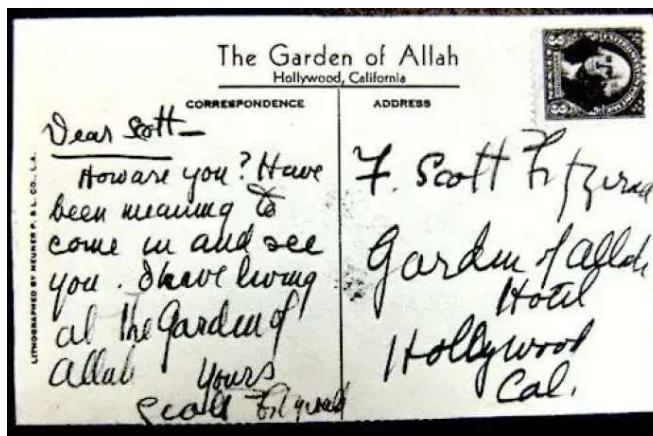 The Garden of Allah
Hollywood, California
CORRESPONDENCE
ADDRESS
LITHOGRAPHED BY NEUNER P. & L. CO., L.A.
Dear Scott—
How are you? Have
been meaning to
come in and see
you. I have living
at The Garden of
Allah
Yours
Scott Fitzgerald
F. Scott Fitzgerald
Garden of Allah
Hotel
Hollywood
Cal.
3 3